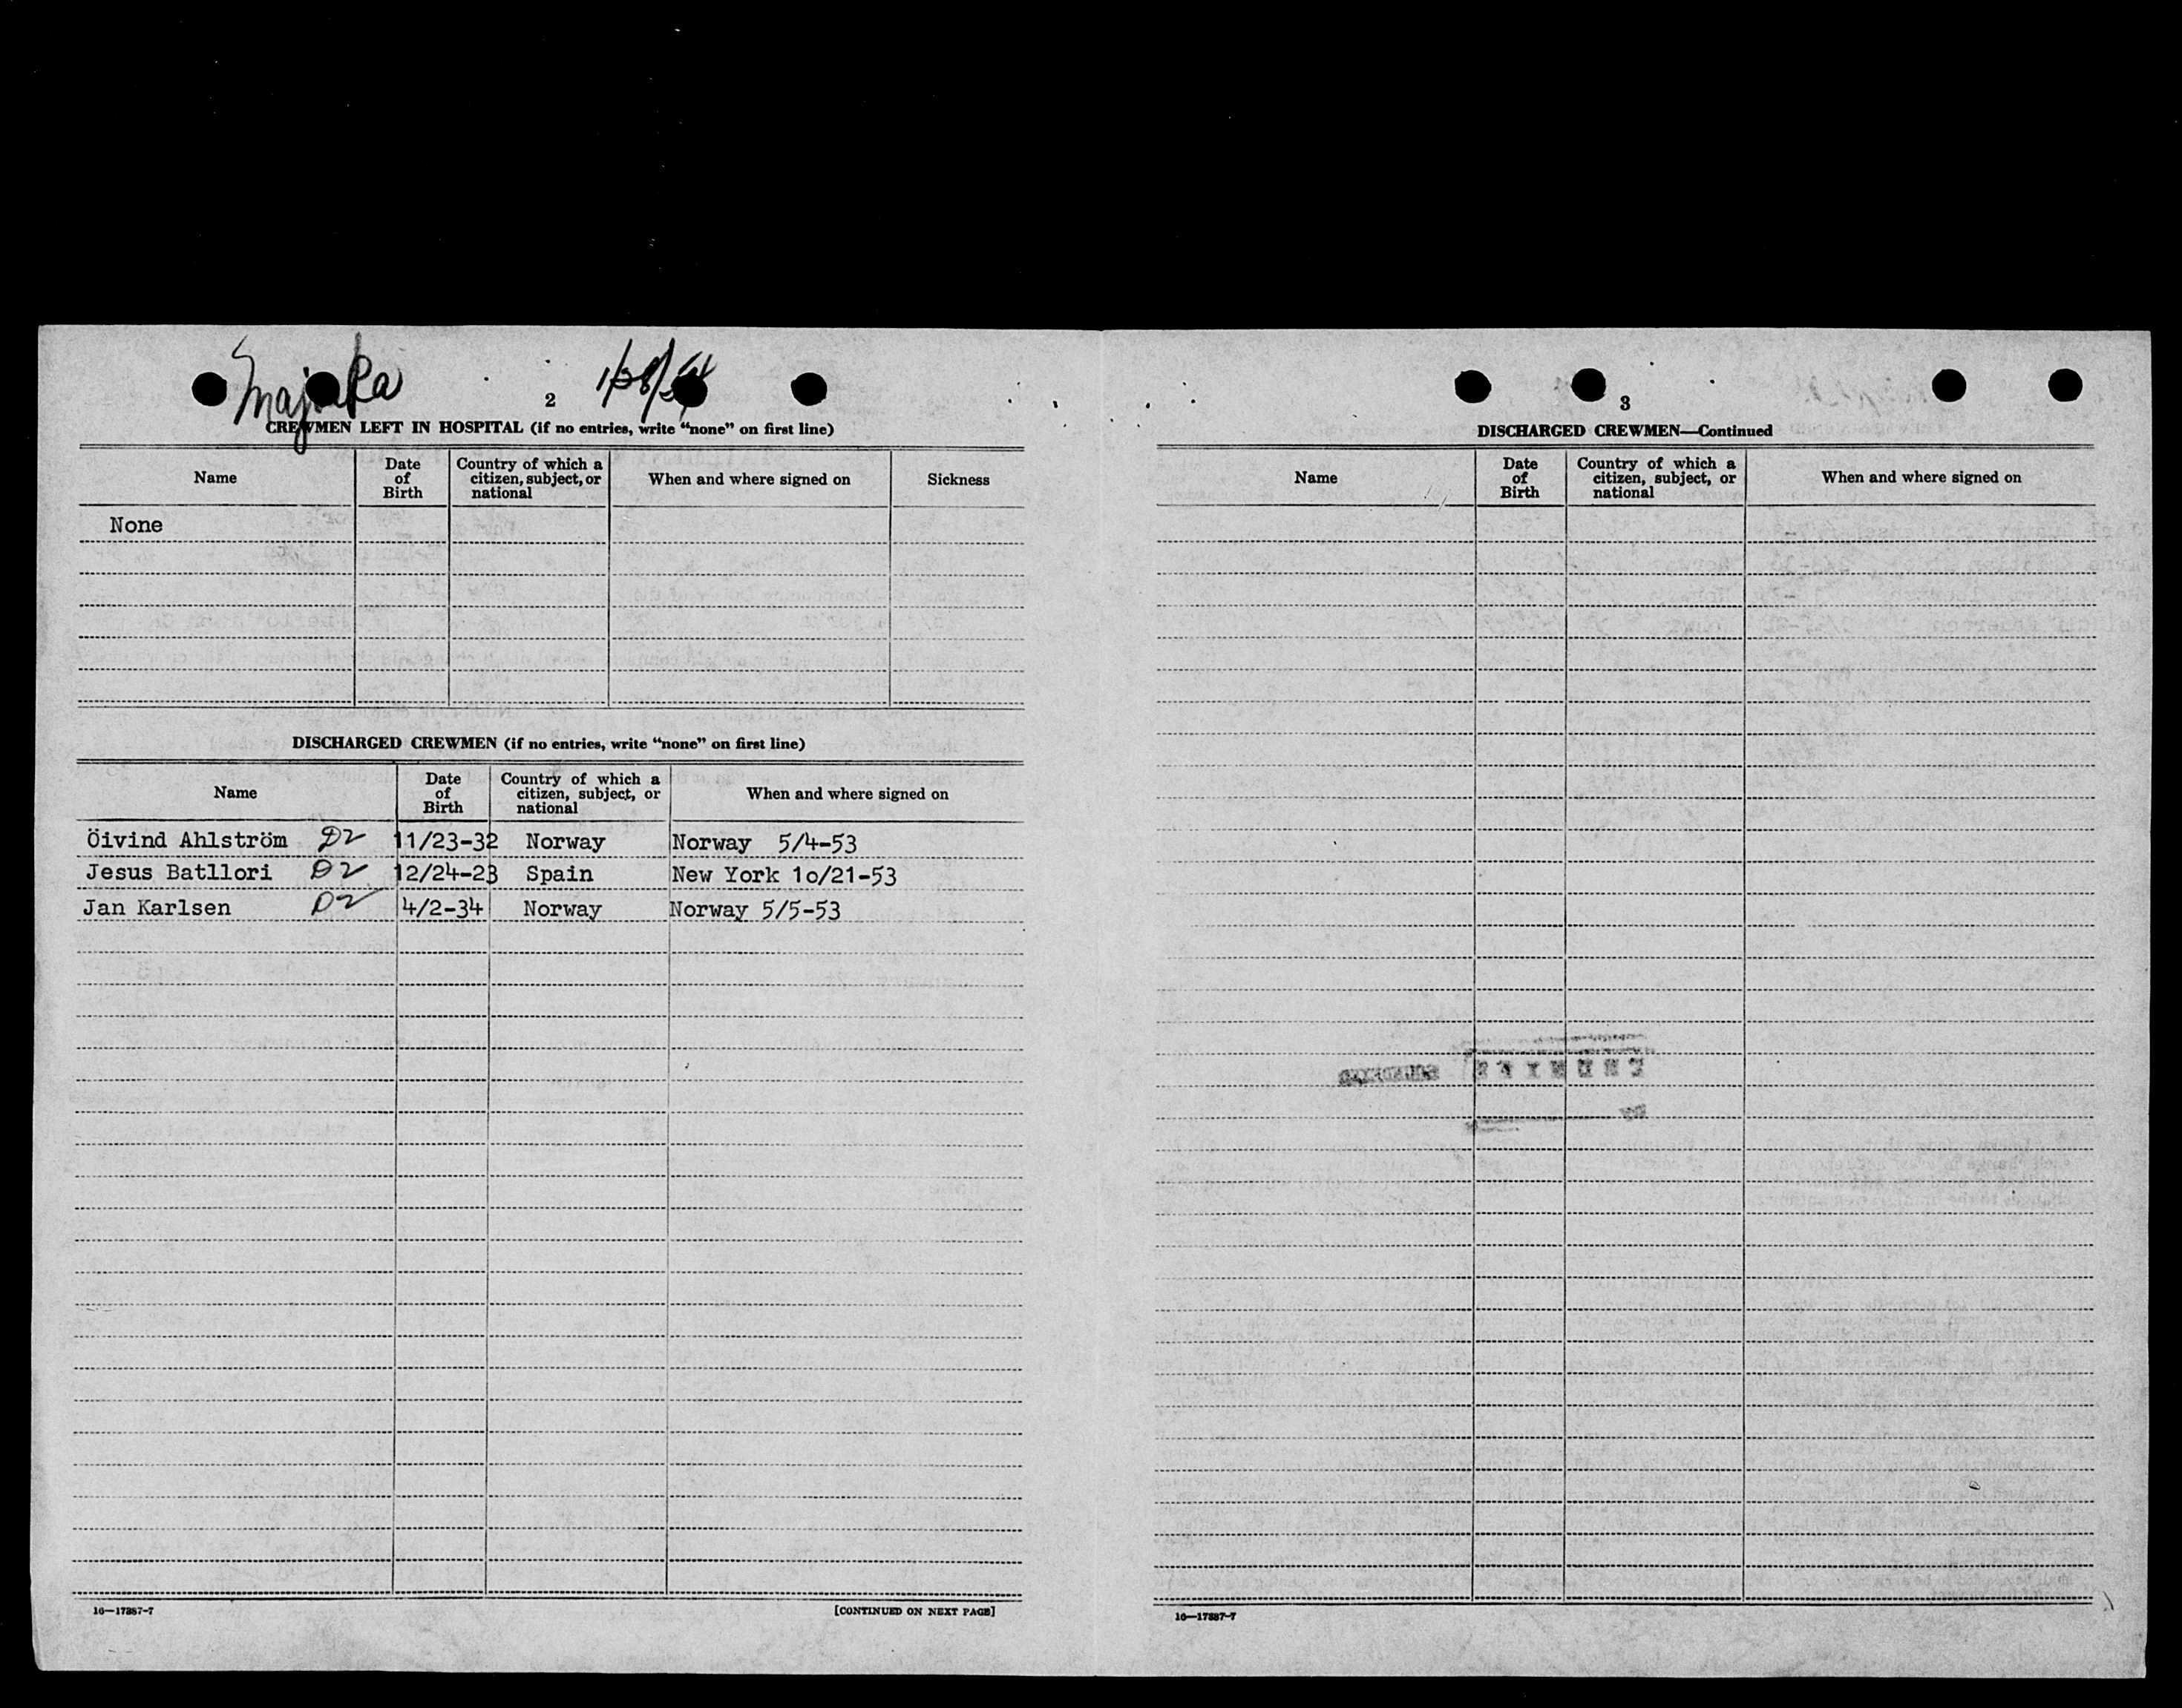 1/28/54
2
CREWMEN LEFT IN HOSPITAL (if no entries, write "none" on first line)
Name
Date of Birth
Country of which a citizen, subject, or national
When and where signed on
Sickness
None
DISCHARGED CREWMEN (if no entries, write "none" on first line)
Name
Date of Birth
Country of which a citizen, subject, or national
When and where signed on
Öivind Ahlström D2 11/23-32 Norway Norway 5/4-53
Jesus Batllori D2 12/24-23 Spain New York 1o/21-53
Jan Karlsen D2 4/2-34 Norway Norway 5/5-53
16—17887-7
[CONTINUED ON NEXT PAGE]
3
DISCHARGED CREWMEN—Continued
Name
Date of Birth
Country of which a citizen, subject, or national
When and where signed on
16—17887-7